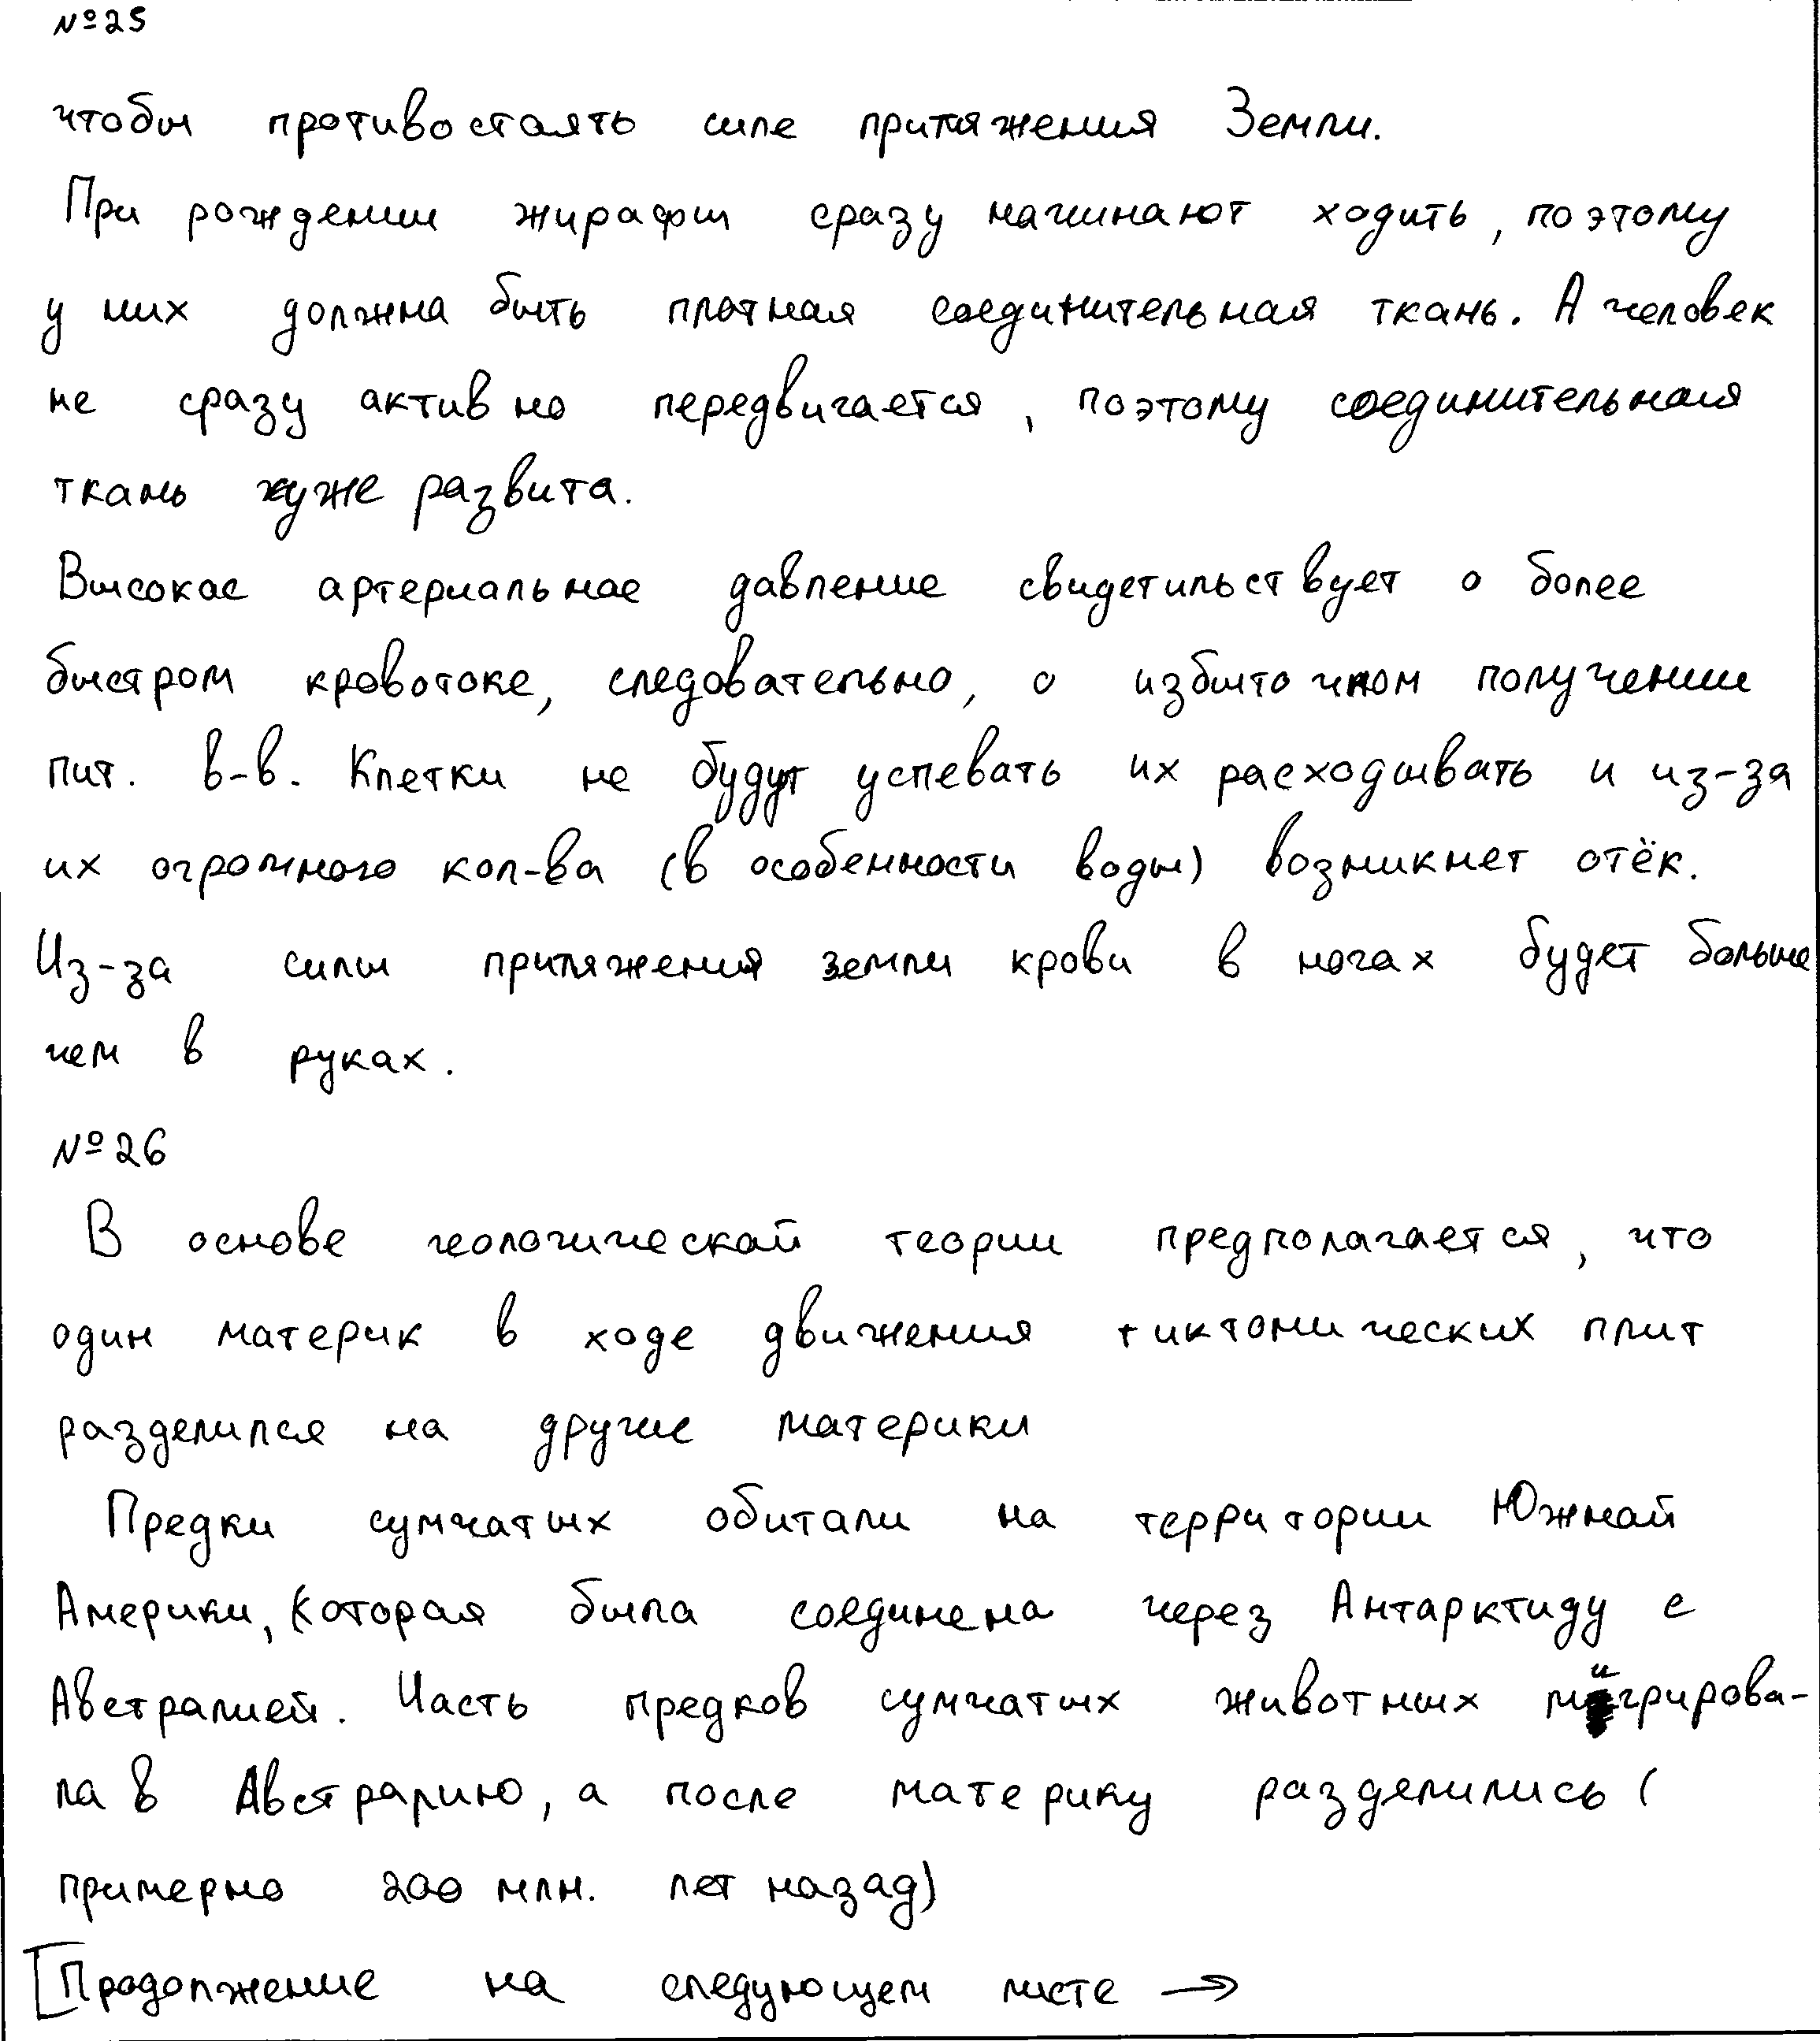 №25
чтобы противостоять силе притяжения Земли.
При рождении жирафы сразу начинают ходить, поэтому
у них должна быть плотная соединительная ткань. А человек
не сразу активно передвигается, поэтому соединительная
ткань хуже развита.
Высокое артериальное давление свидетильствует о более
быстром кровотоке, следовательно, о избыточном получении
пит. в-в. Клетки не будут успевать их расходывать и из-за
их огромного кол-ва (в особенности воды) возникнет отёк.
Из-за силы притяжения земли крови в ногах будет больше
чем в руках.
№26
В основе геологической теории предполагается, что
один материк в ходе движения тиктонических плит
разделился на другие материки
Предки сумчатых обитали на территории Южной
Америки, которая была соединена через Антарктиду с
Австралией. Часть предков сумчатых животных мигрирова-
ла в Австралию, а после материку разделились (
примерно 200 млн. лет назад)
[Продолжение на следующем листе →